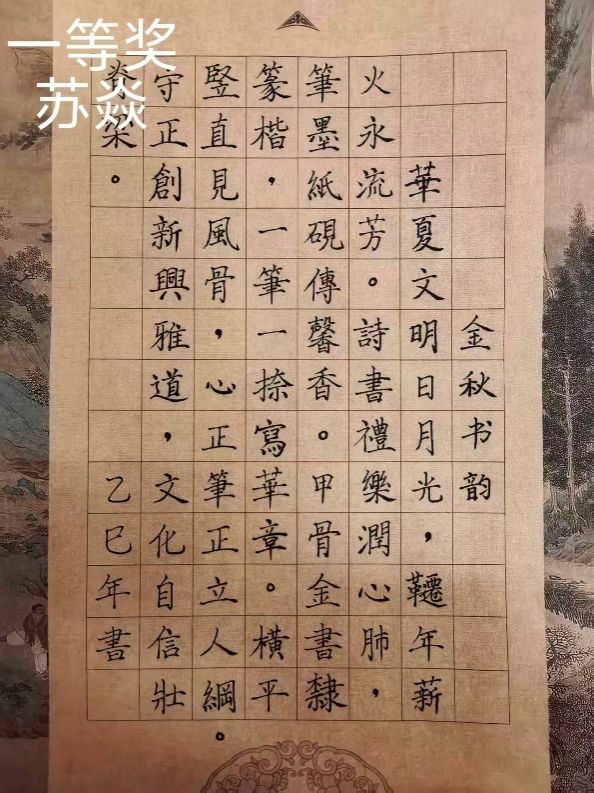 一等奖
苏焱
金秋书韵
華夏文明日月光，韆年薪
火永流芳。詩書禮樂潤心肺，
筆墨紙硯傳馨香。甲骨金書隸
篆楷，一筆一捺寫華章。橫平
竪直見風骨，心正筆正立人綱。
守正創新興雅道，文化自信壯
脊梁。
乙巳年書